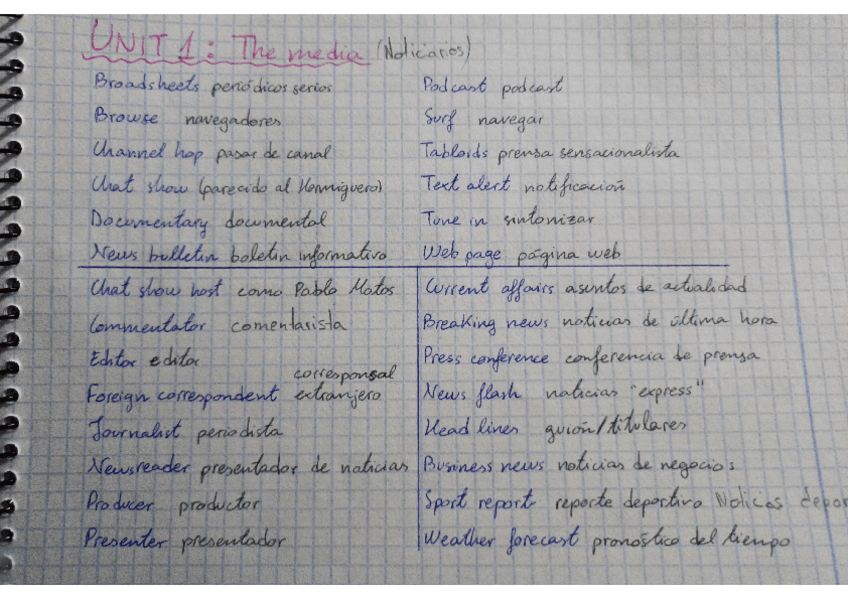 UNIT 1: The media (Noticiarios)
Broadsheets periódicos serios
Browse navegadores
Channel hop pasar de canal
Chat show (parecido al Hormiguero)
Documentary documental
News bulletin boletin informativo
Podcast podcast
Surf navegar
Tabloids prensa sensacionalista
Text alert notificación
Tune in sintonizar
Web page página web
Chat show host como Pablo Motos
Commentator comentarista
Editor editor
Foreign correspondent corresponsal extranjero
Journalist periodista
Newsreader presentador de noticias
Producer productor
Presenter presentador
Current affairs asuntos de actualidad
Breaking news noticias de última hora
Press conference conferencia de prensa
News flash noticias "express"
Head lines guión/titulares
Business news noticias de negocios
Sport report reporte deportivo
Weather forecast pronóstico del tiempo